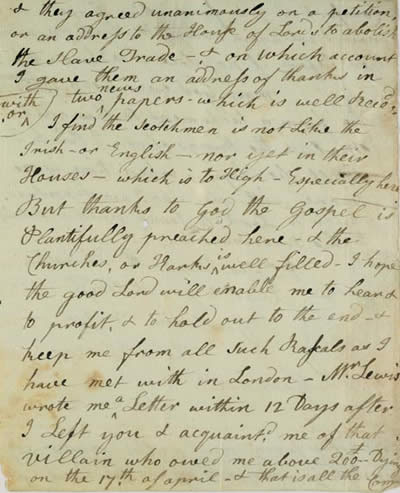 & they agreed unanimously on a petition,
or an address to the House of Lords to abolish
the Slave Trade - & on which account
I gave them an address of thanks in
two news papers - which is well Recd.
with
or I find the Scotchmen is not Like the
Irish - or English - nor yet in their
Houses - which is to High - Especially here
But thanks to God the Gospel is
Plantifully preached here - & the
Churches, or Harks is well filled - I hope
the good Lord will enable me to hear &
to profit, & to hold out to the end - &
keep me from all Such Rascals as I
have met with in London - Mr. Lewis
wrote me a Letter within 12 Days after
I Left you & acquaint.d me of that
villain who owed me above 200 -
on the 17.th of april - & that is all the